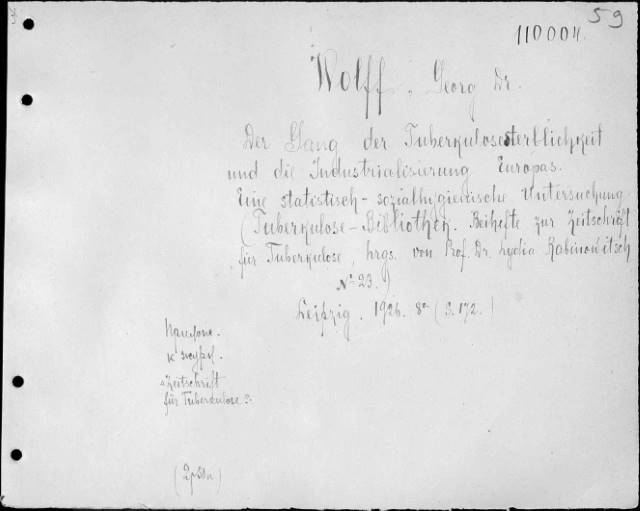 59
110004.
Wolff, Georg Dr.
Der Gang der Tuberkulosesterblichkeit
und die Industrialisierung Europas.
Eine statistisch-sozialhygienische Untersuchung
(Tuberkulose-Bibliothek. Beihefte zur Zeitschrift
für Tuberkulose, hrgs. von Prof. Dr. Lydia Rabinowitsch
№ 23.)
Leipzig. 1926. 8° (S. 172.)
к журн.
"Zeitschrift
für Tuberkulose".